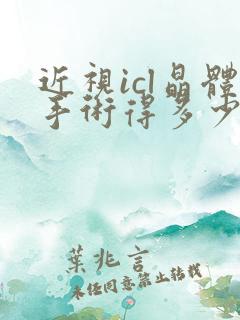 近視icl晶體
手術得多少
葉兆言
未經同意禁止轉載